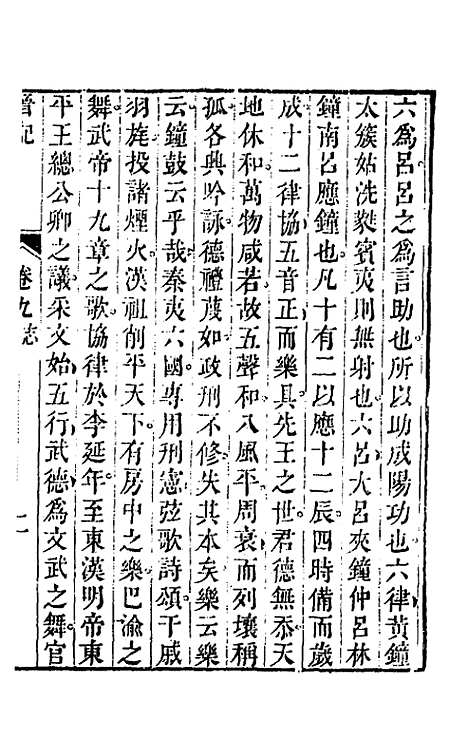 六為呂呂之為言助也所以助成陽功也六律黃鐘
太簇姑洗蕤賓夷則無射也六呂大呂夾鐘仲呂林
鐘南呂應鐘也凡十有二以應十二辰四時備而歲
成十二律協五音正而樂具先王之世君德無忝天
地休和萬物咸若故五聲和八風平周衰而列壤稱
孤各興吟詠德禮蔑如政刑不修失其本矣樂云樂
云鐘鼓云乎哉秦夷六國專用刑憲弦歌詩頌干戚
羽旄投諸煙火漢祖削平天下有房中之樂巴渝之
舞武帝十九章之歌協律於李延年至東漢明帝東
平王總公卿之議采文始五行武德為文武之舞官
晉記
卷九志
二